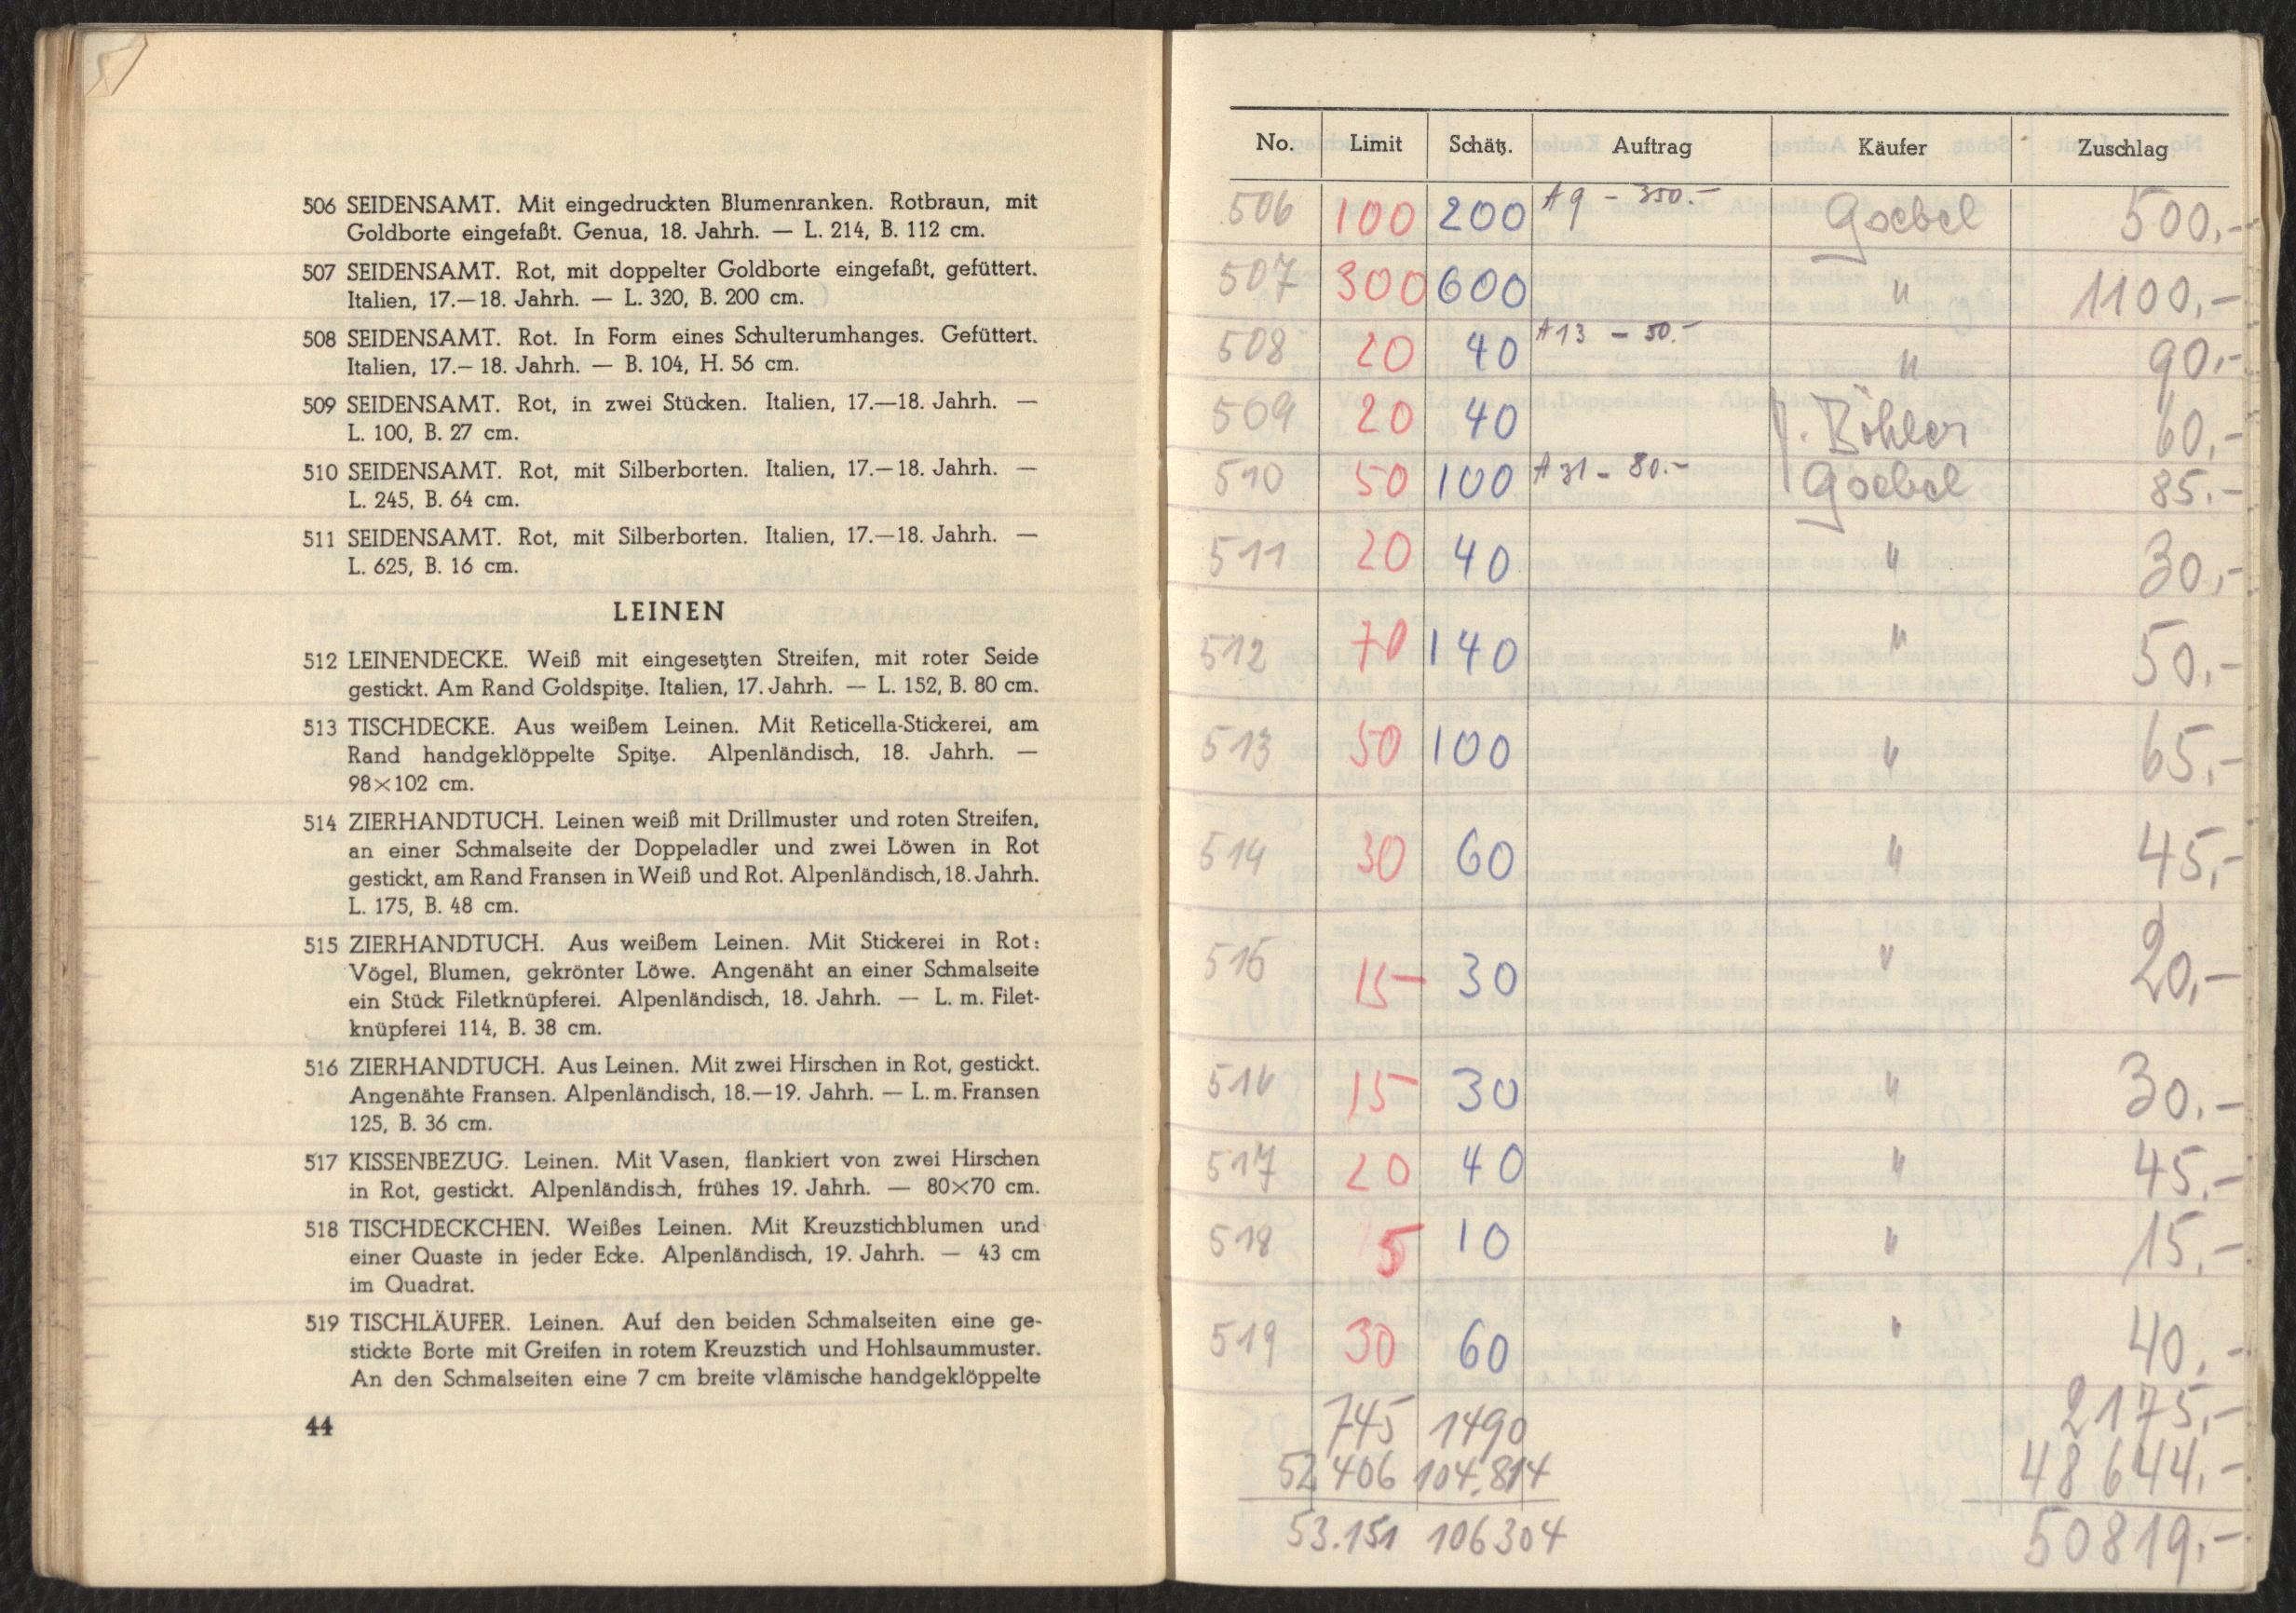 506 SEIDENSAMT. Mit eingedruckten Blumenranken. Rotbraun, mit
Goldborte eingefaßt. Genua, 18. Jahrh. — L. 214, B. 112 cm.
507 SEIDENSAMT. Rot, mit doppelter Goldborte eingefaßt, gefüttert.
Italien, 17.—18. Jahrh. — L. 320, B. 200 cm.
508 SEIDENSAMT. Rot. In Form eines Schulterumhanges. Gefüttert.
Italien, 17.— 18. Jahrh. — B. 104, H. 56 cm.
509 SEIDENSAMT. Rot, in zwei Stücken. Italien, 17.—18. Jahrh. —
L. 100, B. 27 cm.
510 SEIDENSAMT. Rot, mit Silberborten. Italien, 17.—18. Jahrh. —
L. 245, B. 64 cm.
511 SEIDENSAMT. Rot, mit Silberborten. Italien, 17.—18. Jahrh. —
L. 625, B. 16 cm.
LEINEN
512 LEINENDECKE. Weiß mit eingesetzten Streifen, mit roter Seide
gestickt. Am Rand Goldspitze. Italien, 17. Jahrh. — L. 152, B. 80 cm.
513 TISCHDECKE. Aus weißem Leinen. Mit Reticella-Stickerei, am
Rand handgeklöppelte Spitze. Alpenländisch, 18. Jahrh. —
98×102 cm.
514 ZIERHANDTUCH. Leinen weiß mit Drillmuster und roten Streifen,
an einer Schmalseite der Doppeladler und zwei Löwen in Rot
gestickt, am Rand Fransen in Weiß und Rot. Alpenländisch, 18. Jahrh.
L. 175, B. 48 cm.
515 ZIERHANDTUCH. Aus weißem Leinen. Mit Stickerei in Rot:
Vögel, Blumen, gekrönter Löwe. Angenäht an einer Schmalseite
ein Stück Filetknüpferei. Alpenländisch, 18. Jahrh. — L. m. Filet-
knüpferei 114, B. 38 cm.
516 ZIERHANDTUCH. Aus Leinen. Mit zwei Hirschen in Rot, gestickt.
Angenähte Fransen. Alpenländisch, 18.—19. Jahrh. — L. m. Fransen
125, B. 36 cm.
517 KISSENBEZUG. Leinen. Mit Vasen, flankiert von zwei Hirschen
in Rot, gestickt. Alpenländisch, frühes 19. Jahrh. — 80×70 cm.
518 TISCHDECKCHEN. Weißes Leinen. Mit Kreuzstichblumen und
einer Quaste in jeder Ecke. Alpenländisch, 19. Jahrh. — 43 cm
im Quadrat.
519 TISCHLÄUFER. Leinen. Auf den beiden Schmalseiten eine ge-
stickte Borte mit Greifen in rotem Kreuzstich und Hohlsaummuster.
An den Schmalseiten eine 7 cm breite vlämische handgeklöppelte
44
No. Limit Schätz. Auftrag Käufer Zuschlag
506 100 200 A 9 – 350.– Goebel 500,–
507 300 600 " 1100,–
508 20 40 A 13 – 50.– " 90,–
509 20 40 J. Böhler 60,–
510 50 100 A 31 – 80.– Goebel 85.–
511 20 40 " 30,–
512 70 140 " 50,–
513 50 100 " 65,–
514 30 60 " 45,–
515 15 30 " 20,–
516 15 30 " 30.–
517 20 40 " 45.–
518 5 10 " 15,–
519 30 60 " 40.–
745 1490 2175,–
52406 104.814 48644,–
53.151 106304 50819,–